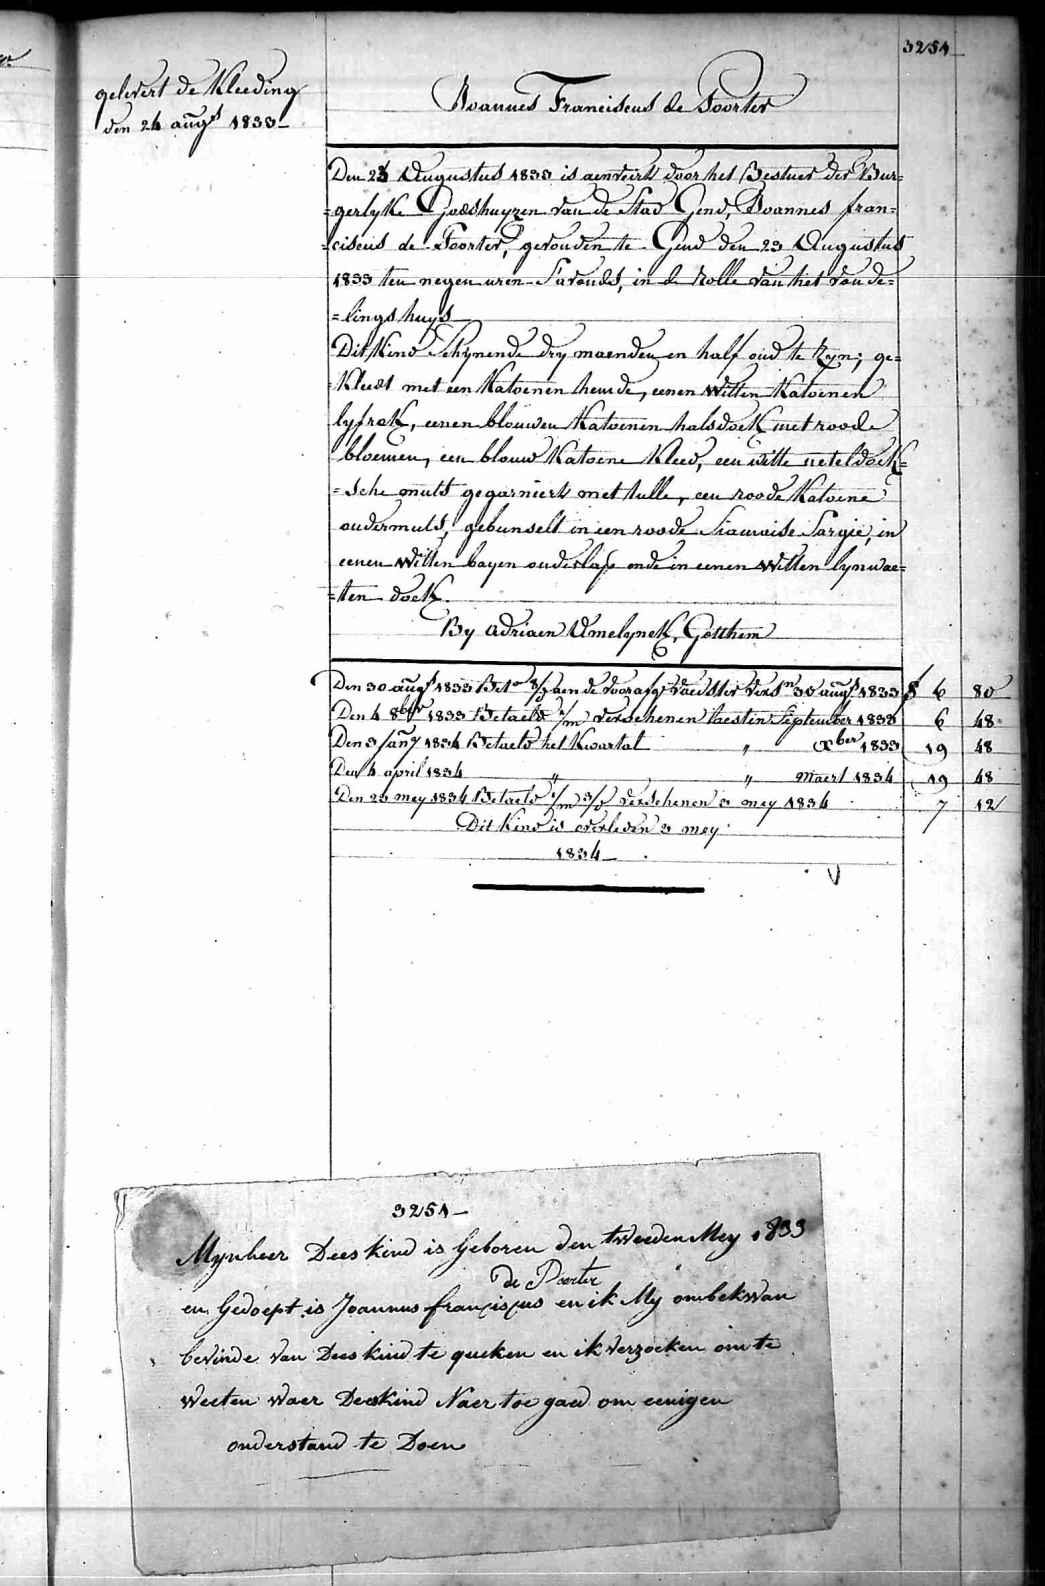 3251
gelevert de Kleeding
den 24 augs 1833_
Joannes Franciscus de Poorter
Den 23 Augustus 1833 is aenveirt door het Bestuer der Bur=
=gerlyke Godshuyzen van de Stad Gend, Joannes fran=
=ciscus de Poorter, gevonden te Gend den 23 Augustus
1833 ten negen uren S'avonds, in de rolle van het vonde=
=lingshuys
Dit Kind Schynende dry maenden en half oud te Zyn; ge=
=Kleed met een Katoenen hemde, eenen Witten Katoenen
lyfrok, eenen blouwen Katoenen halsdoek met roode
bloemen, een blouw Katoene Kleed, een witte neteldoek=
=sche muts gegarniert met tulle, een roode Katoene
ondermuts, gebunselt in een roode Siamoise Sargie, in
eenen Witten bayen onderlap ende in eenen Witten lynwae=
=ten doek.
By Adriaen Amelynck, Gotthem
Den 30 augs 1833 Beto aen de voorafg voedster vers.n 30 augs 1833 f 6 80
Den 4 8ber 1833 Betaeld 1/m verschenen laesten September 1833 6 48
Den 3 Jany 1834 Betaeld het Kwartal " Xber 1833 19 48
Den 4 april 1834 " " Maert 1834 19 48
Den 23 mey 1834 Betaeld 1/m 3/d verschenen 3 mey 1834 7 12
Dit Kind is overleden 3 mey
1834_
3251_
Mynheer Dees kind is Geboren den tweeden Mey 1833
de Poorter
en Gedoept is Joannus franciscus en ik My ombekwan
bevinde van Dees kind te queken en ik verzoeken om te
weeten waer Deeskind Naer toe gaed om eenigen
onderstand te Doen